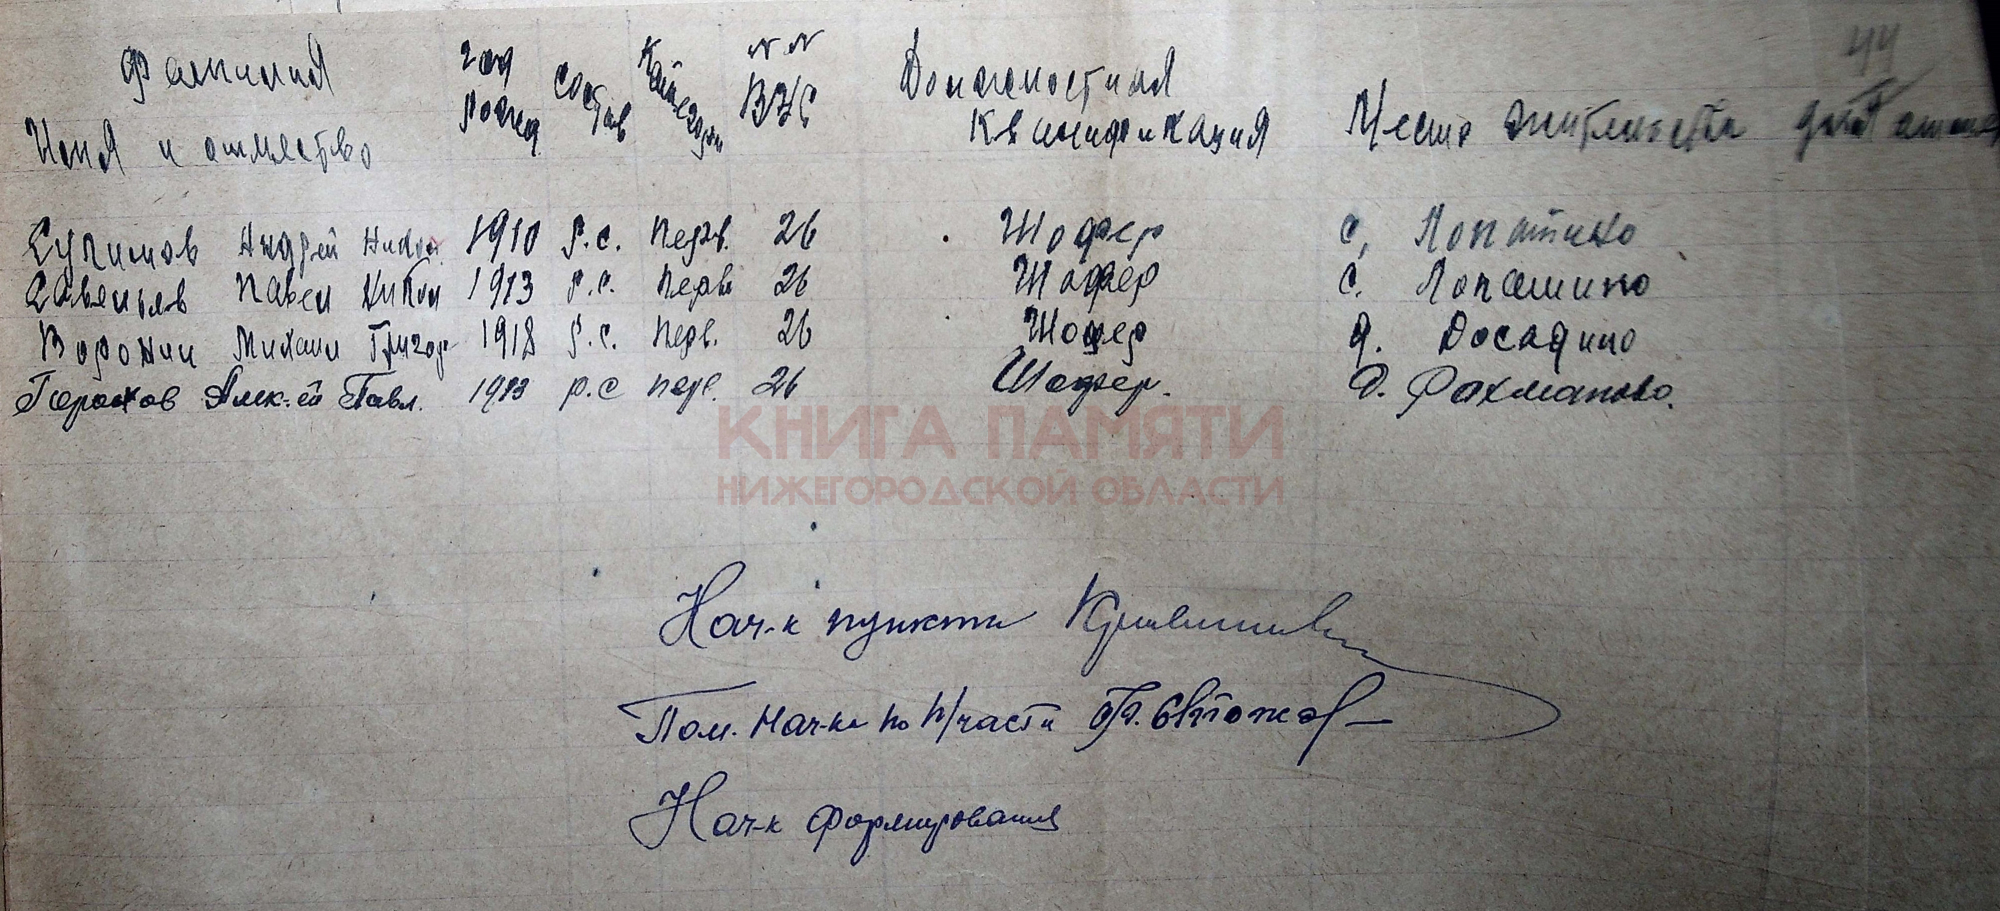 44
Фамилия Имя и отчество год рожд состав Категория №№ ВУС Должностная Квалификация Место жительства
Андрей Никол 1910 р.с. перв. 26 Шофер с. Лопатино
Савельев Павел Никол 1913 р.с. перв 26 Шофер с. Лопатино
Воронин Михаил Григор 1918 р.с. перв. 26 Шофер д. Досадино
Горохов Алек-ей Павл. 1913 р.с перв. 26 Шофер. д. Рахманово.
КНИГА ПАМЯТИ
НИЖЕГОРОДСКОЙ ОБЛАСТИ
Нач-к пункта
Пом. Нач-ка по п/части
Нач-к формирования